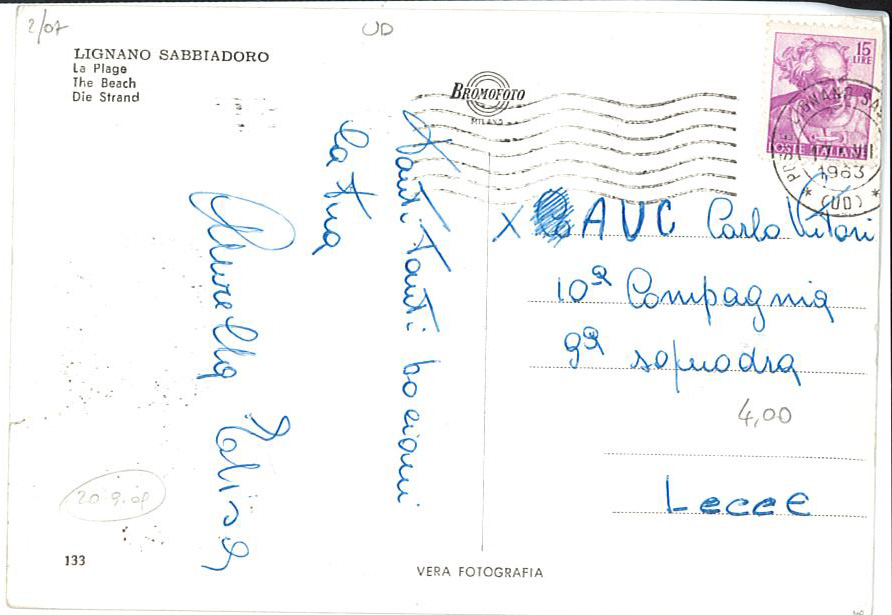 2/07
UD
LIGNANO SABBIADORO
La Plage
The Beach
Die Strand
BROMOFOTO
MILANO
15
LIRE
POSTE ITALIANE
LIGNANO SA
17 VII
1963
(UD)
Tanti Tanti bacioni
la tua
X AUC Carlo Vitari
10ª Compagnia
9ª squadra
4,00
Lecce
133
VERA FOTOGRAFIA